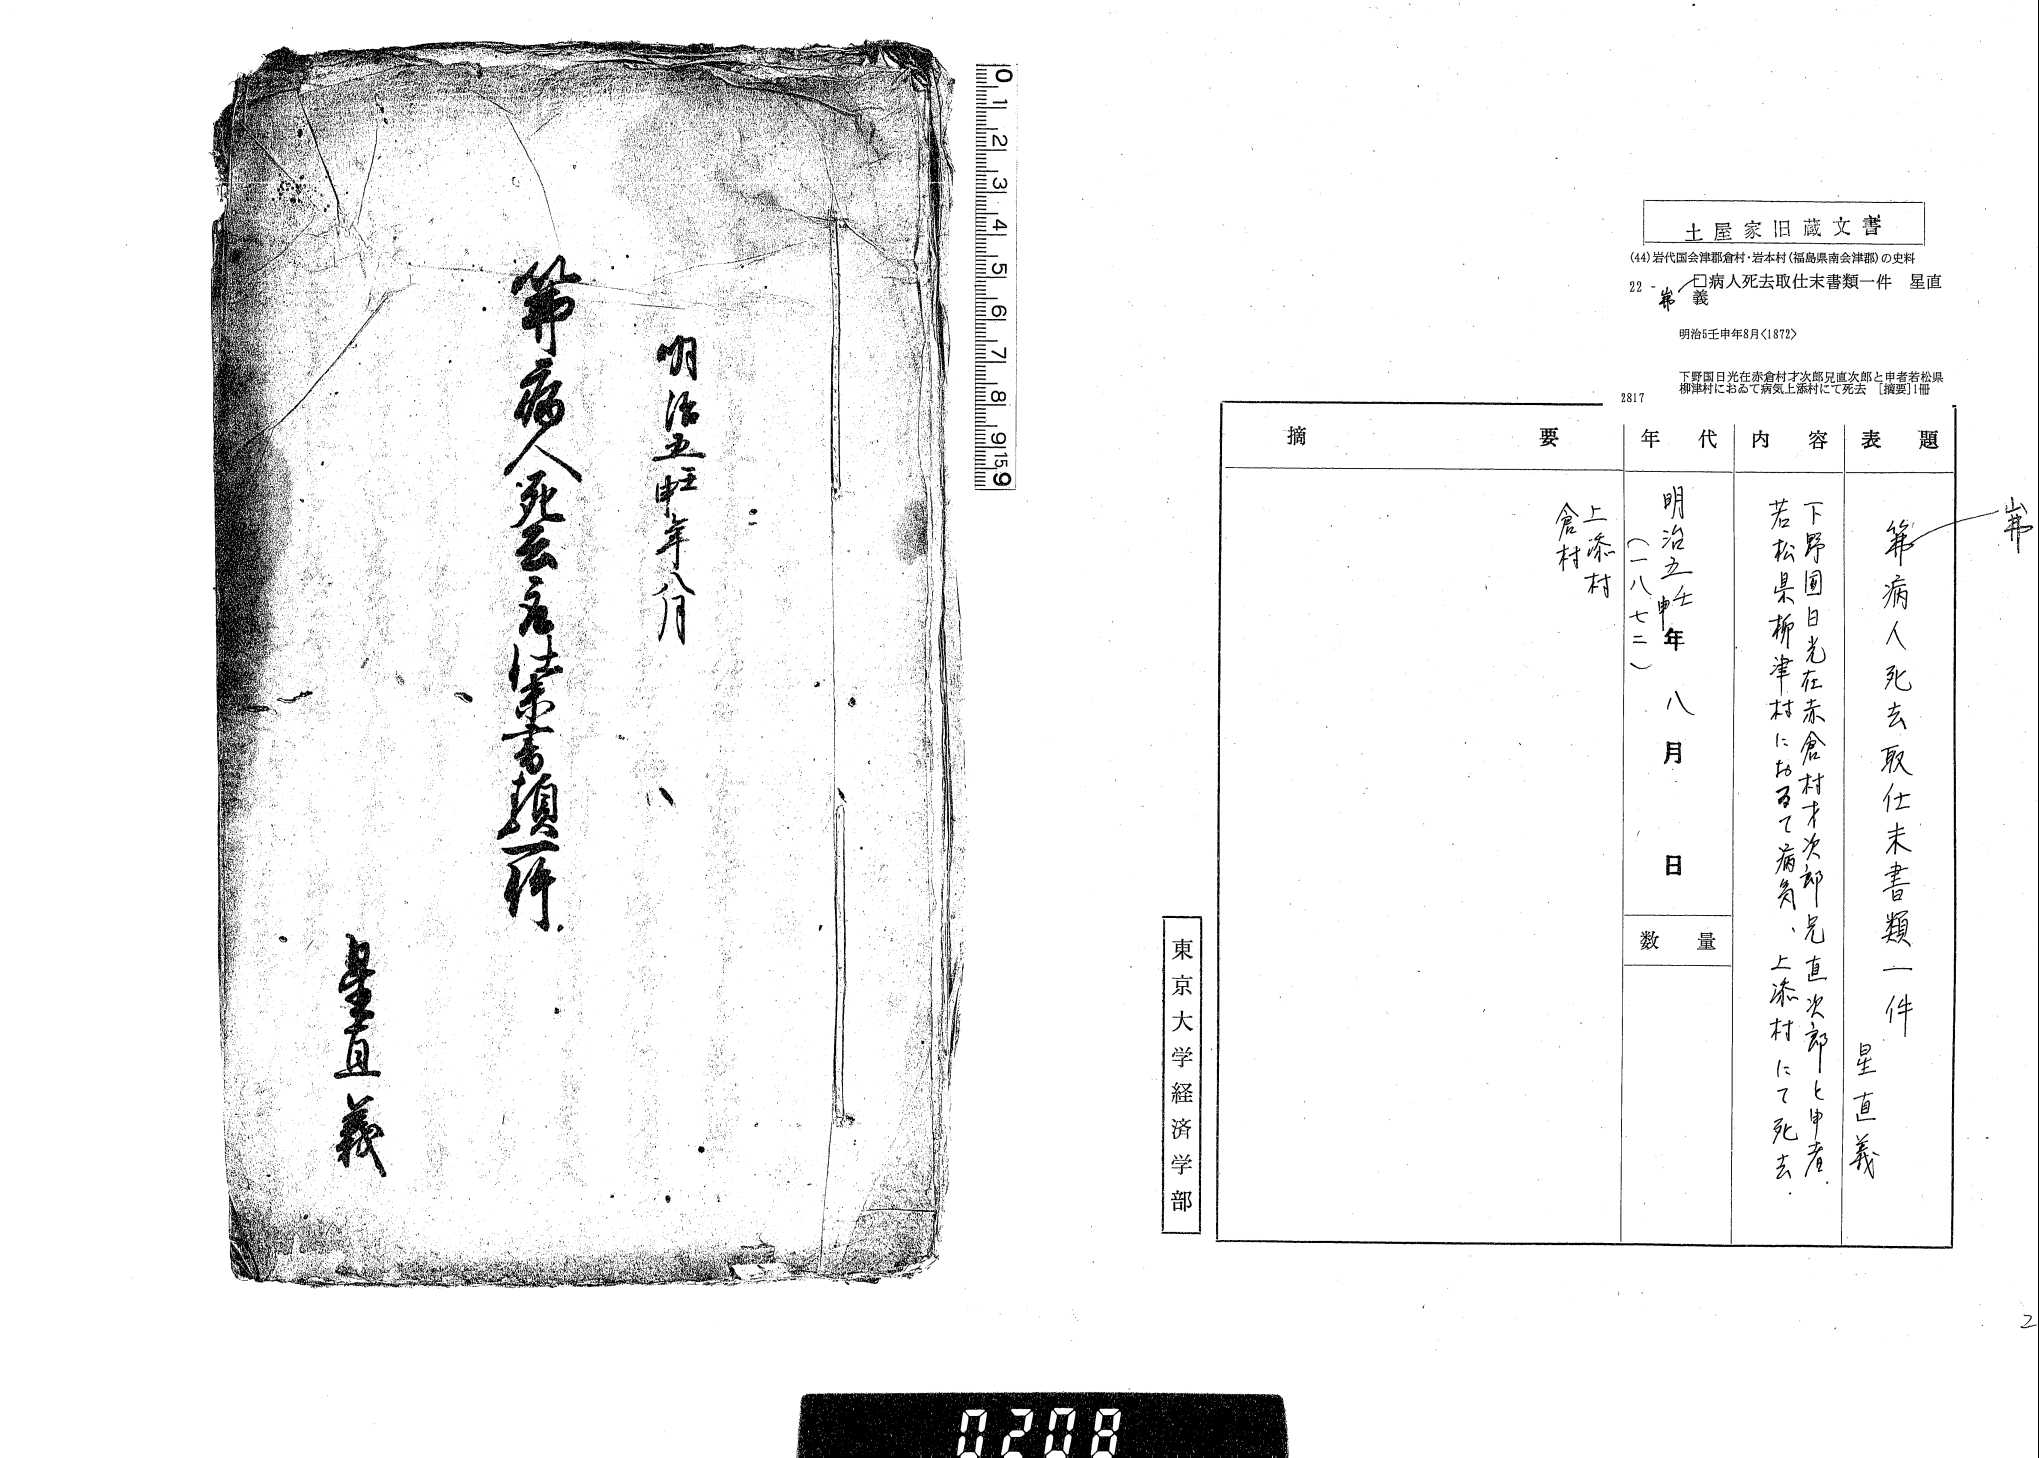 土屋家旧蔵文書
(44)岩代国会津郡倉村・岩本村(福島県南会津郡)の史料
22 - 口病人死去取仕末書類一件　星直
義
明治5壬申年8月〈1872〉
下野国日光在赤倉村才次郎兄直次郎と申者若松県
柳津村におゐて病気上添村にて死去　[摘要]1冊
2817
表題
内容
年代
摘要
病人死去取仕末書類一件
星直義
下野国日光在赤倉村才次郎兄直次郎と申者
若松県柳津村におゐて病気、上添村にて死去
明治五壬申年八月　日
(一八七二)
数量
上添村
倉村
東京大学経済学部
明治五壬申年八月
病人死去取仕末書類一件
星直義
0 1 2 3 4 5 6 7 8 9 15 9
2
0208